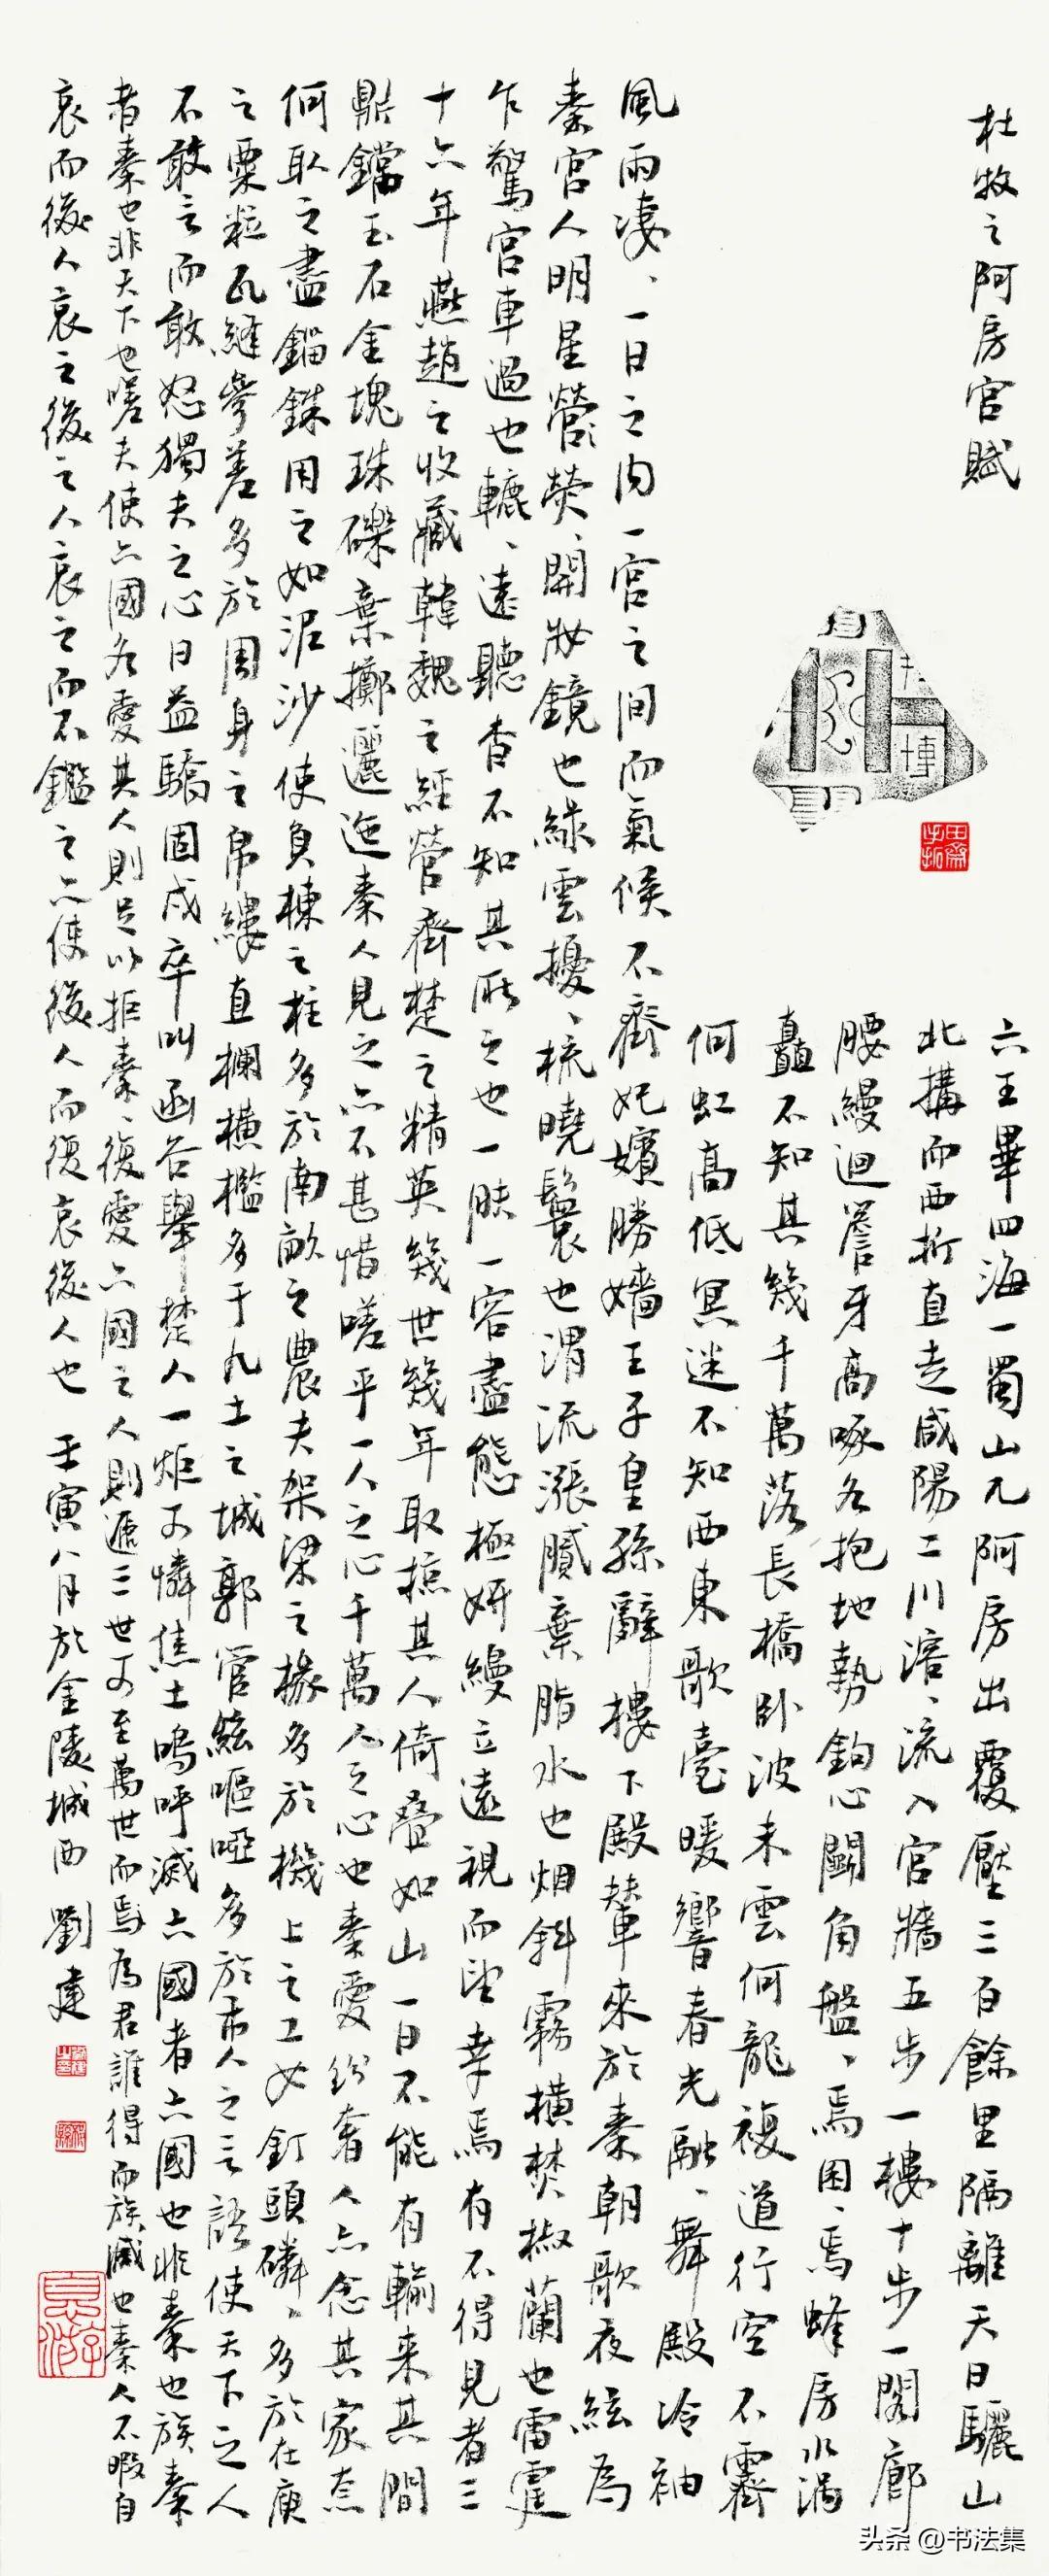 杜牧之阿房宫賦
六王畢四海一蜀山兀阿房出覆壓三百餘里隔離天日驪山
北構而西折直走咸陽二川溶、流入宫牆五步一樓十步一閣廊
腰縵迴簷牙高啄各抱地勢鉤心鬭角盤、焉囷、焉蜂房水渦
矗不知其幾千萬落長橋卧波未雲何龍複道行空不霽
何虹高低冥迷不知西東歌臺暖響春光融、舞殿冷袖
風雨凄、一日之内一宫之间而氣候不齊妃嬪媵嬙王子皇孫辭樓下殿輦來於秦朝歌夜絃為
秦宫人明星營熒、開妝鏡也緑雲擾、梳曉鬟也渭流漲膩棄脂水也烟斜霧横焚椒蘭也雷霆
乍驚宫車過也轆、遠聽杳不知其所之也一肤一容盡態極妍縵立遠視而望幸焉有不得見者三
十六年燕趙之收藏韓魏之經營齊楚之精英幾世幾年取掠其人倚叠如山一日不能有輸来其間
鼎鐺玉石金塊珠礫棄擲邐迤秦人見之亦不甚惜嗟乎一人之心千萬人之心也秦愛紛奢人亦念其家奈
何取之盡錙銖用之如泥沙使負棟之柱多於南畝之農夫架梁之椽多於機上之工女釘頭磷、多於在庾
之粟粒瓦縫參差多於周身之帛縷直欄横檻多于九土之城郭管絃嘔啞多於市人之言語使天下之人
不敢言而敢怒獨夫之心日益驕固戍卒叫函谷舉楚人一炬可憐焦土嗚呼滅六國者六國也非秦也族秦
者秦也非天下也嗟夫使六國各愛其人則足以拒秦、復愛六國之人則遞三世可至萬世而為君誰得而族滅也秦人不暇自
哀而後人哀之後之人哀之而不鑑之亦使後人而復哀後人也 壬寅八月於金陵城西 劉建
头条 @书法集